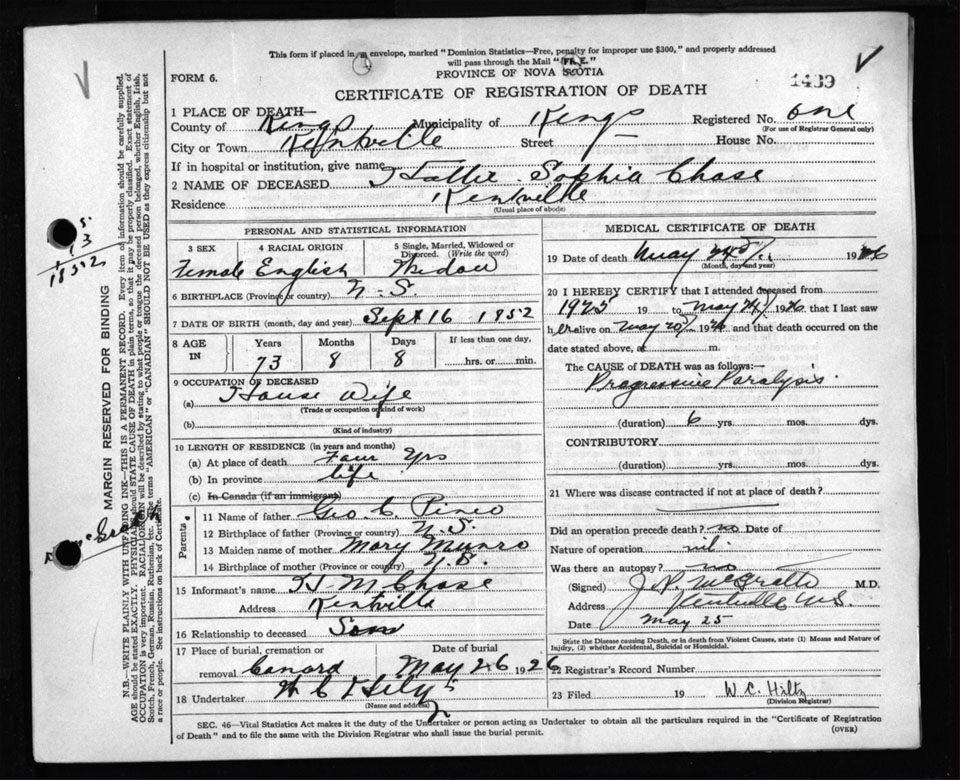 This form if placed in an envelope, marked "Dominion Statistics—Free, penalty for improper use $300," and properly addressed
will pass through the Mail "FREE."
FORM 6.
PROVINCE OF NOVA SCOTIA
1439
CERTIFICATE OF REGISTRATION OF DEATH
1 PLACE OF DEATH—
County of Kings Municipality of Kings Registered No. one
(For use of Registrar General only)
City or Town Kentville Street — House No.
If in hospital or institution, give name
2 NAME OF DECEASED Hattie Sophia Chase
Residence Kentville
(Usual place of abode)
PERSONAL AND STATISTICAL INFORMATION
3 SEX 4 RACIAL ORIGIN 5 Single, Married, Widowed or
Divorced. (Write the word)
Female English Widow
6 BIRTHPLACE (Province or country) N.S.
7 DATE OF BIRTH (month, day and year) Sept 16 1852
8 AGE IN Years Months Days If less than one day,
73 8 8 hrs. or min.
9 OCCUPATION OF DECEASED
(a) House Wife
(Trade or occupation or kind of work)
(b)
(Kind of industry)
10 LENGTH OF RESIDENCE (in years and months)
(a) At place of death Four Yrs
(b) In province life
(c) In Canada (if an immigrant)
Parents
11 Name of father Geo. C. Pineo
12 Birthplace of father (Province or country) N.S.
13 Maiden name of mother Mary Munro
14 Birthplace of mother (Province or country) N.B.
15 Informant's name H M Chase
Address Kentville
16 Relationship to deceased Son
17 Place of burial, cremation or Date of burial
removal Canard May 26 1926
18 Undertaker
(Name and address)
MEDICAL CERTIFICATE OF DEATH
19 Date of death May 1926
(Month, day and year)
20 I HEREBY CERTIFY that I attended deceased from
1925 19 to May 24 1926 that I last saw
her alive on May 20 1926 and that death occurred on the
date stated above, at m.
The CAUSE OF DEATH was as follows:—
Progressive Paralysis
(duration) 6 yrs. mos. dys.
CONTRIBUTORY
(duration) yrs. mos. dys.
21 Where was disease contracted if not at place of death?
Did an operation precede death? no Date of
Nature of operation nil
Was there an autopsy? no
(Signed) J.P. McGrath M.D.
Address Kentville N.S.
Date May 25
State the Disease causing Death, or in death from Violent Causes, state (1) Means and Nature of
Injury, (2) whether Accidental, Suicidal or Homicidal.
22 Registrar's Record Number
23 Filed 19 W. C. Hiltz
(Division Registrar)
SEC. 46—Vital Statistics Act makes it the duty of the Undertaker or person acting as Undertaker to obtain all the particulars required in the "Certificate of Registration
of Death" and to file the same with the Division Registrar who shall issue the burial permit.
(OVER)
MARGIN RESERVED FOR BINDING
N.B.—WRITE PLAINLY WITH UNFADING INK—THIS IS A PERMANENT RECORD. Every item of information should be carefully supplied.
AGE should be stated EXACTLY. PHYSICIANS should STATE CAUSE OF DEATH in plain terms, so that it may be properly classified. Exact statement of
OCCUPATION is very important. RACIAL ORIGIN will be described by stating to what people or tongue the deceased person belonged, whether English, Irish,
Scotch, French, German, Russian, Ruthenian, etc. The terms "AMERICAN" or "CANADIAN" SHOULD NOT BE USED as they express citizenship but not
a race or people. See instructions on back of Certificate.
1852